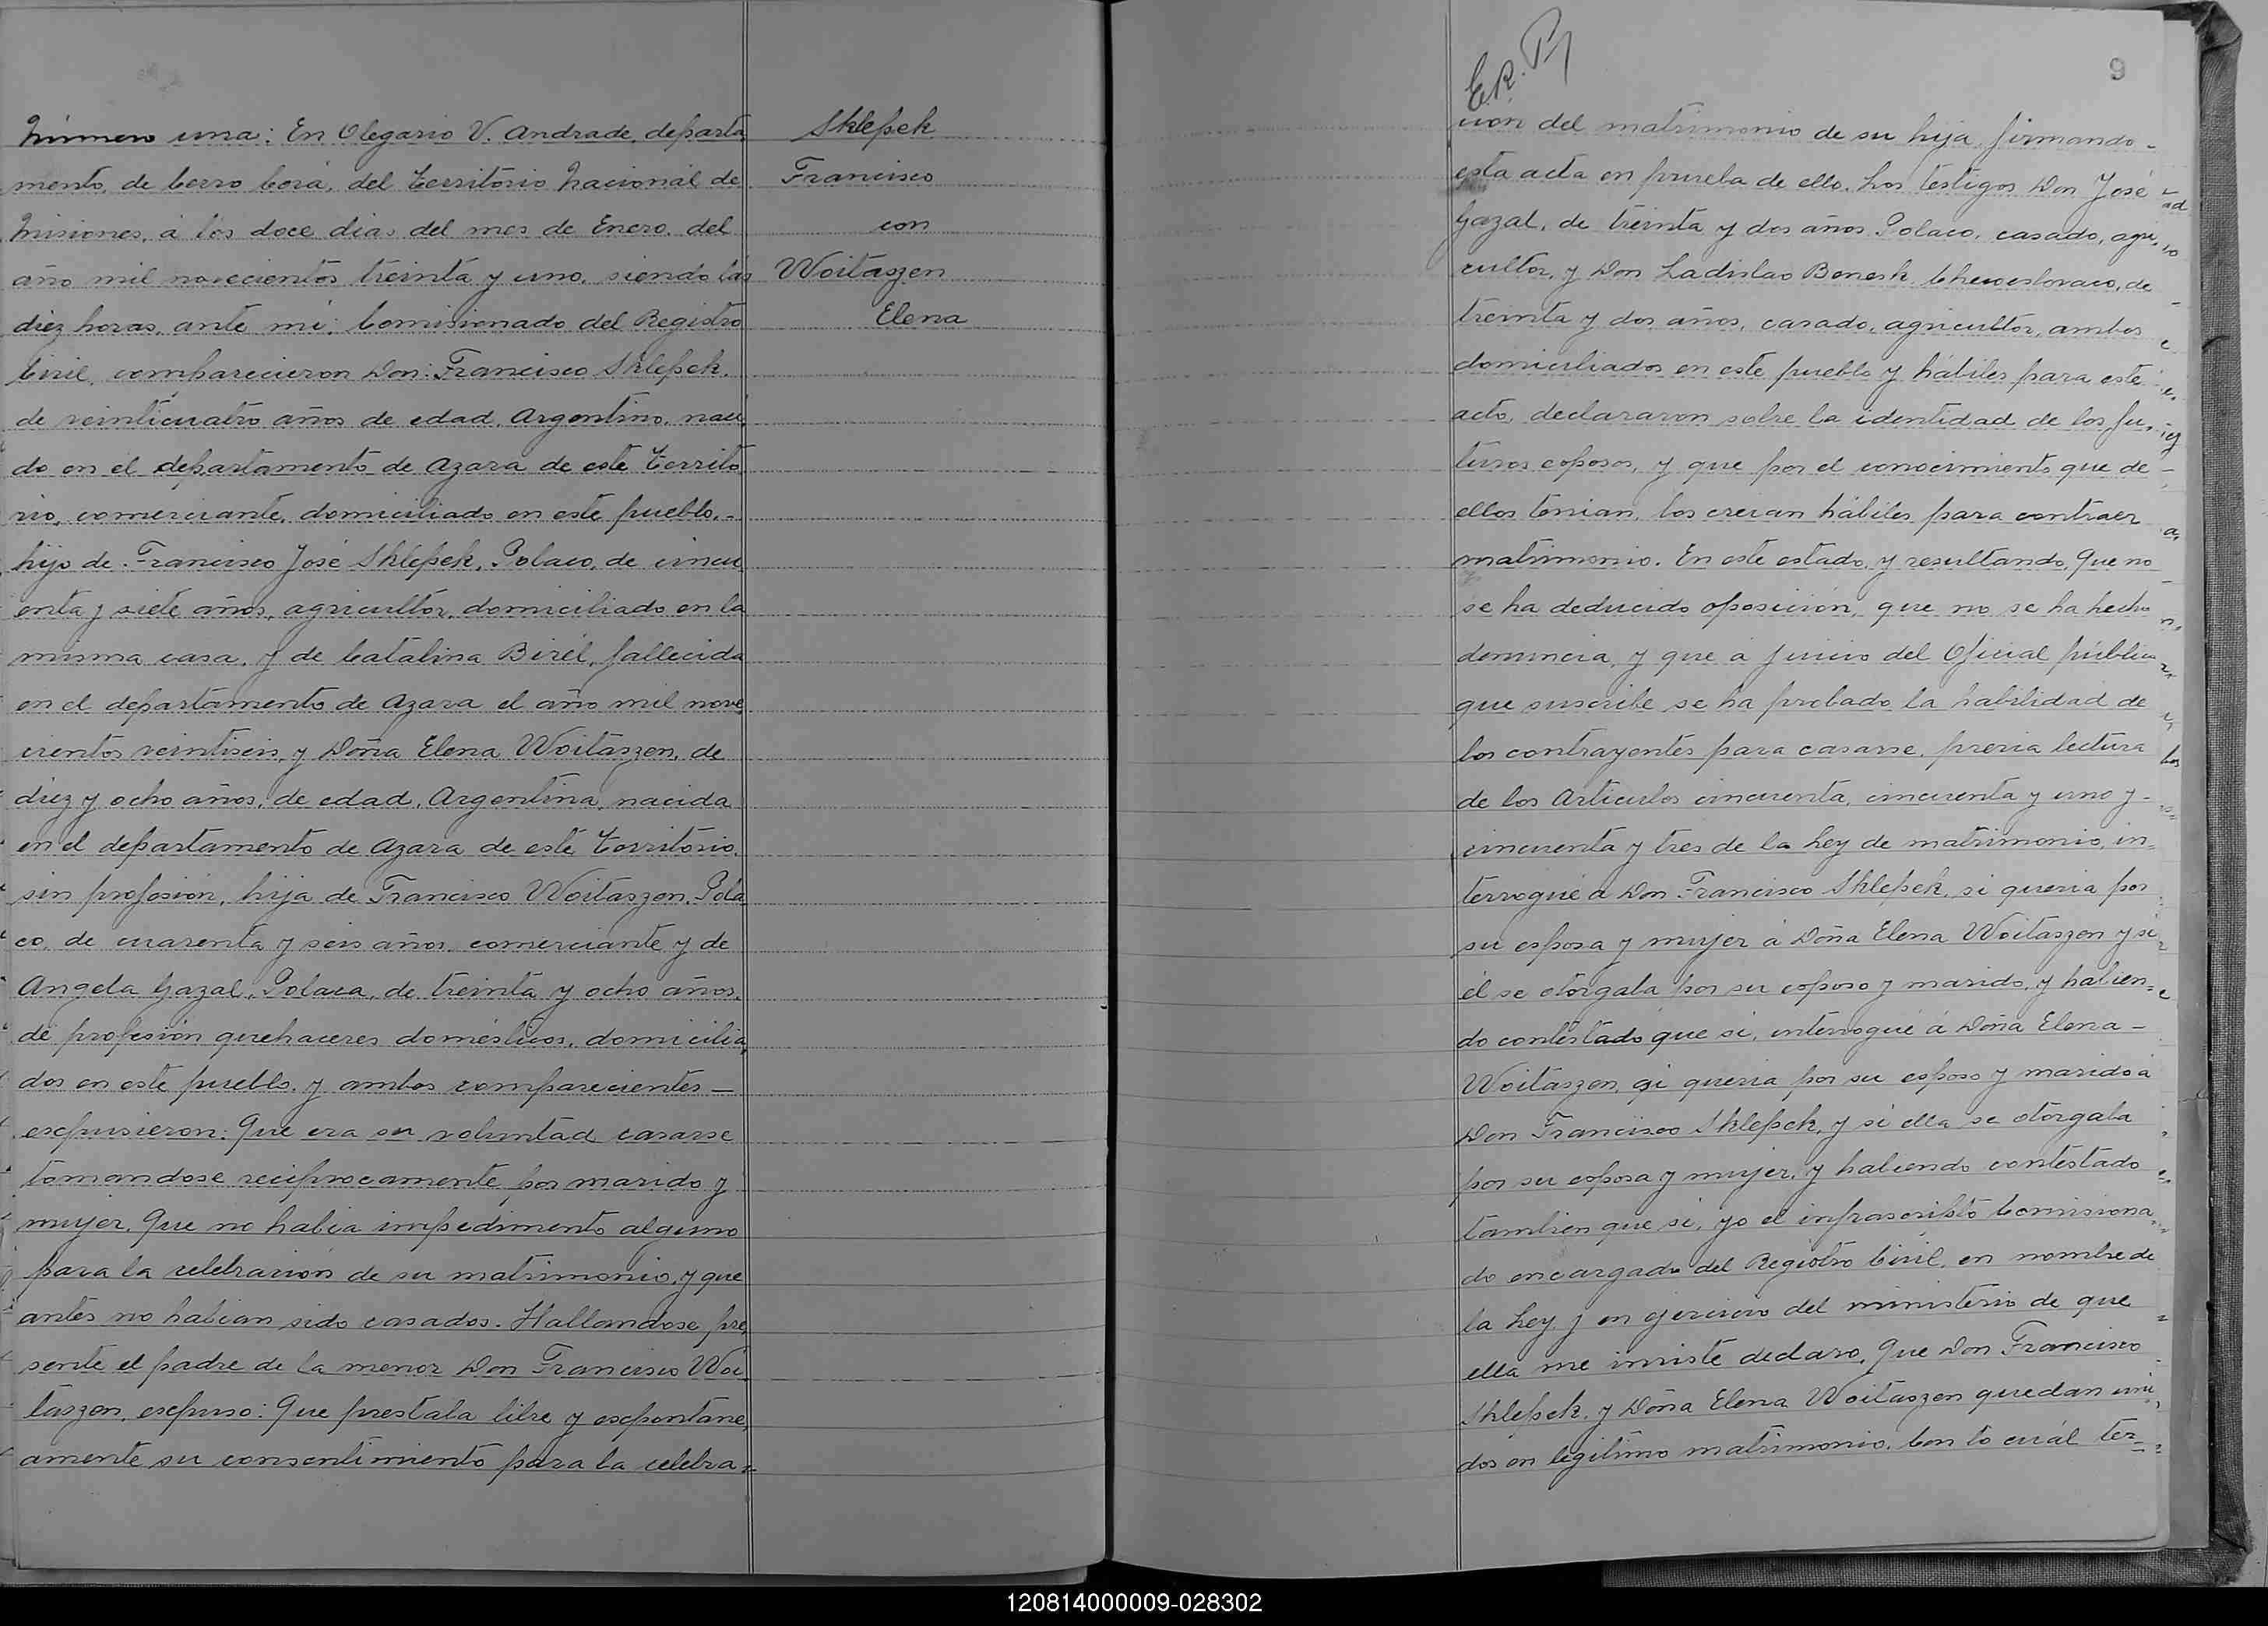 Número una: En Olegario V. Andrade, departa
mento, de Cerro Corá, del Territorio Nacional de
Misiones, á los doce dias del mes de Enero, del
año mil novecientos treinta y uno, siendo las
diez horas, ante mi: Comisionado del Registro
Civil, comparecieron Don: Francisco Sklepek,
de veinticuatro años de edad, Argentino, naci
do en el departamento de Azara de este Territo
rio, comerciante, domiciliado en este pueblo.-
hijo de Francisco José Sklepek, Polaco, de cincu
enta y siete años, agricultor, domiciliado en la
misma casa, y de Catalina Birél, fallecida
en el departamento de Azara el año mil nove
cientos veintiseis, y Doña Elena Woitaszen, de
diez y ocho años, de edad, Argentina, nacida
en el departamento de Azara de este Territorio,
sin profesión, hija de Francisco Woitaszen, Pola
co, de cuarenta y seis años, comerciante y de
Angela Gazal, Polaca, de treinta y ocho años,
de profesión quehaceres domésticos, domicilia
dos en este pueblo, y ambos comparecientes —
expusieron: Que era su voluntad casarse
tomandose reciprocamente por marido y
mujer. Que no habia impedimento alguno
para la celebración de su matrimonio, y que
antes no habian sido casados. Hallandose pre
sente el padre de la menor Don Francisco Woi
taszen, expuso: Que prestaba libre y expontane
amente su consentimiento para la celebra=
Sklepek
Francisco
con
Woitaszen
Elena
9
cion del matrimonio de su hija, firmando-
esta acta en prueba de ello. Los testigos Don José
Gazal, de treinta y dos años, Polaco, casado, agri
cultor, y Don Ladislao Benesh, Checoeslovaco, de
treinta y dos años, casado, agricultor, ambos
domiciliados en este pueblo y hábiles para este
acto, declararon sobre la identidad de los fu
turos esposos, y que por el conocimiento que de-
ellos tenian, los creian hábiles para contraer
matrimonio. En este estado, y resultando, Que no
se ha deducido oposición, que no se ha hecho
denuncia, y que á juicio del Oficial público
que suscribe se ha probado la habilidad de
los contrayentes para casarse, previa lectura
de los Articulos cincuenta, cincuenta y uno y-
cincuenta y tres de la Ley de matrimonio, in=
terrogué á Don Francisco Sklepek, si queria por
su esposa y mujer á Doña Elena Woitaszen y si
él se otorgaba por su esposo y marido, y habien=
do contestado que si, interrogué á Doña Elena-
Woitaszen, si queria por su esposo y marido á
Don Francisco Sklepek, y si ella se otorgaba
por su esposa y mujer, y habiendo contestado
tambien que si, yo el infrascripto Comisiona
do encargado del Registro Civil, en nombre de
la Ley y en ejercicio del ministerio de que
ella me inviste declaro, Que Don Francisco
Sklepek, y Doña Elena Woitaszen quedan uni
dos en legitimo matrimonio. Con lo cuál ter=
120814000009-028302